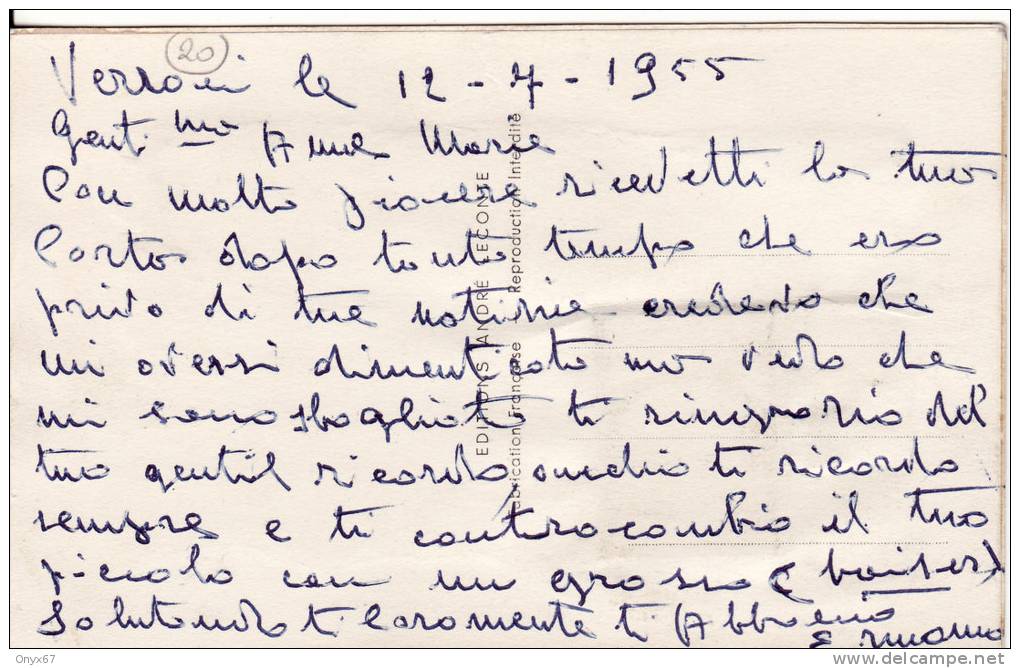 20
le 12-7-1955
Gent.mo Anne Marie
Con molto piacere ricevetti la tua
Carta dopo tanto tempo che ero
privo di tue notizie credevo che
mi avessi dimenticato ma vedo che
mi sono sbagliato ti ringrazio del
tuo gentil ricordo anch'io ti ricordo
sempre e ti contracambio il tuo
piccolo con un grosso (baiser)
Salutandoti Caramente ti Abbracio
EDITIONS ANDRÉ LECONTE
Fabrication Française - Reproduction Interdite
Onyx67
www.delcampe.net